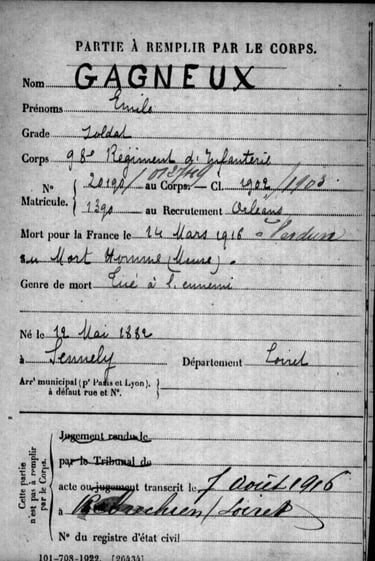 PARTIE À REMPLIR PAR LE CORPS.
Nom GAGNEUX
Prénoms Emile
Grade Soldat
Corps 98e Régiment d'Infanterie
N° Matricule. { 20190/012744 au Corps. — Cl. 1902/1903
1390 au Recrutement Orléans
Mort pour la France le 14 Mars 1916 à Verdun
au Mort Homme (Meuse).
Genre de mort Tué à l'ennemi
Né le 12 Mai 1882
à Sennely Département Loiret
Arrt municipal (pr Paris et Lyon), à défaut rue et N°.
Cette partie n'est pas à remplir par le Corps.
Jugement rendu le
par le Tribunal de
acte ou jugement transcrit le 7 Août 1916
à Rebréchien/Loiret
N° du registre d'état civil
101-708-1922. [26434]